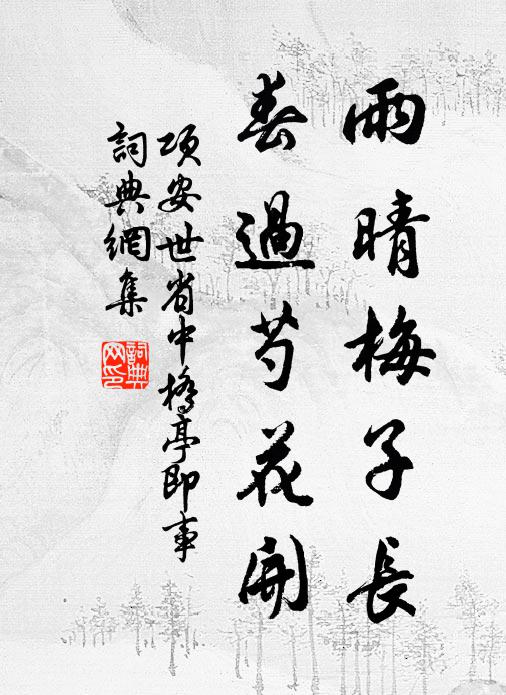 雨晴梅子長
春過芍花開
項安世省中橋亭即事
詞典網集
詞典網印